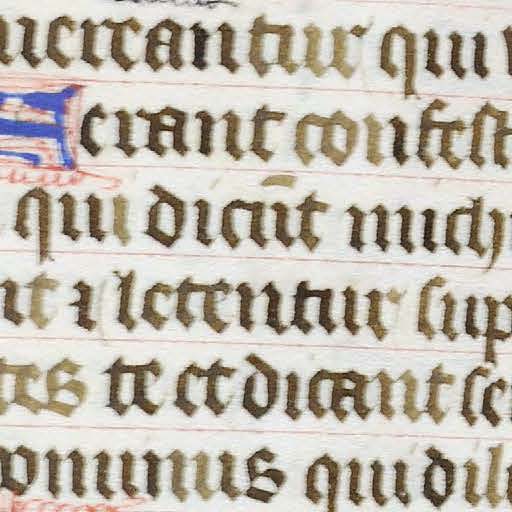 uereantur qui
Ferant confest
qui dicūt mich
nt ⁊ letentur sup
tes te et dicant se
ominus qui dil